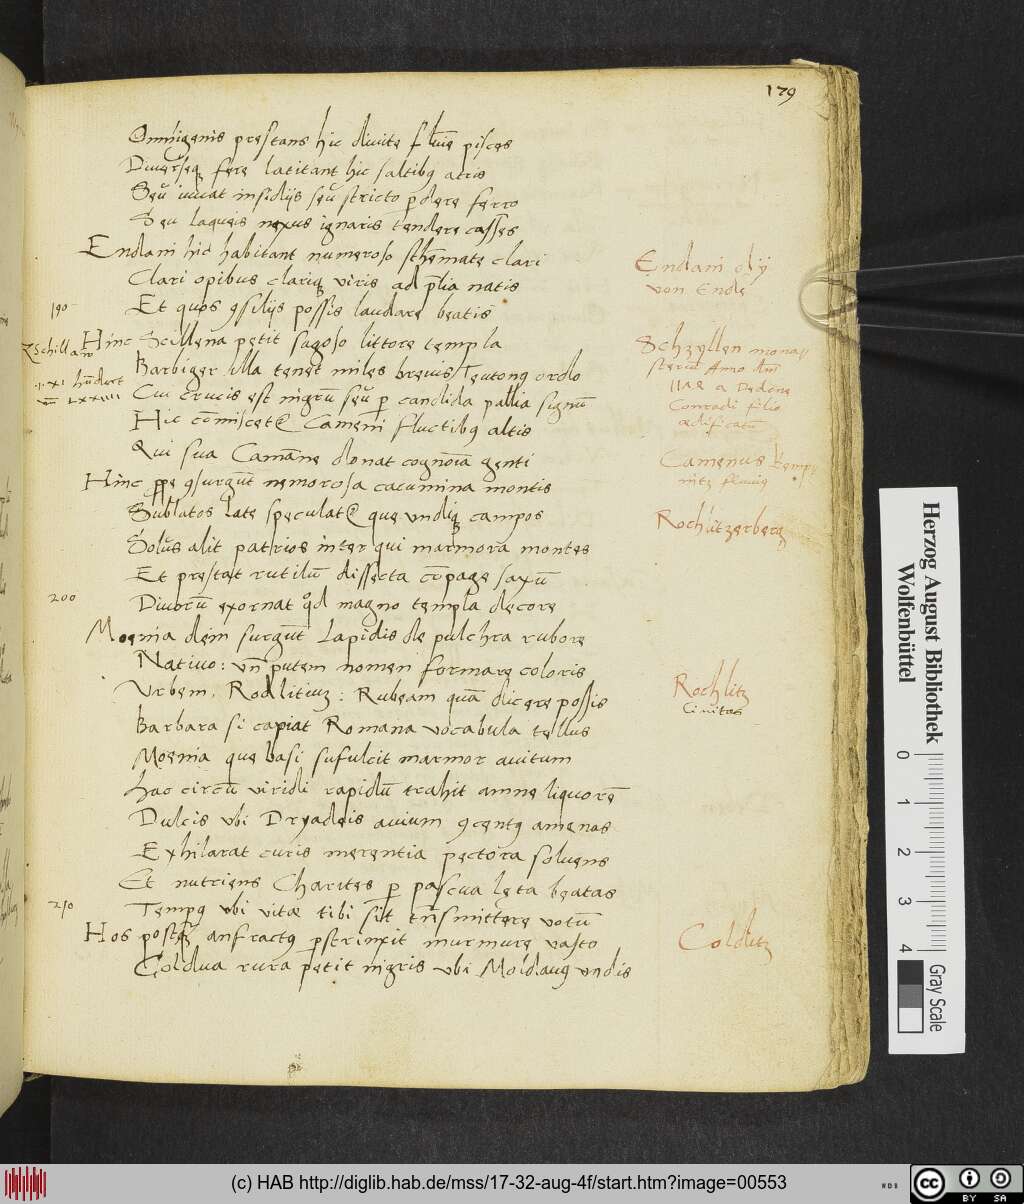 179
Omnigenis prestans hic divite flūīe pisces
Diuersęq fere latitant hic saltibq atris
Seu iuuat insidijs seu stricto pdere ferro
Seu laqueis nexus ignaris tendere casses
Endani hic habitant numeroso sthēmate clari
Clari opibus clariq viris ad p̄lia natis
190
Et quos 9silijs possis laudare beatis
Hinc Scillena petit sagoso littore templa
Zschillaw
Barbiger illa tenet miles breuis Teutonq ordo
Cui crucis est nigrū seu p candida pallia signū
Hic cōmiscet Cameni fluctibq altis
Qui sua Camēne donat cognoīa genti
Hinc ppe 9surgūt nemorosa cacumina montis
Sublatos late speculat que undiq campos
Solus alit patrios inter qui marmora montes
Et prestat rutilū dissecta cōpage saxū
200
Diuorū exornat qd magno templa decore
Moenia dein surgūt Lapidis de pulchra rubore
Natiuo: vn putem nomen formare coloris
Urbem. Rodlitiuz: Rubeam quā dicere possis
Barbara si capiat Romana vocabula tellus
Moenia que basi sufulcit marmor auitum
hac circū viridi rapidū trahit amne liquorē
Dulcis vbi Dryadeis auium 9centq amenas
Exhilarat curis merentia pectora soluens
Et nutriens Charites p pascua lęta beatas
210
Tempq vbi vitæ tibi sit trnsmittere votū
Hos postq anfractq pstrinxit murmure vasto
Coldua rura petit nigris vbi Moldauq vndis
Endani dij
von Ende
Schzyllen mona
steriū Anno dm̄
1174 a Dedone
Conradi filio
ædificatū
Camenus kemp
nitz fluuiq
Rochlitzerberg
Rochlitz
Ciuitas
Colditz
Herzog August Bibliothek
Wolfenbüttel
0 1 2 3 4
Gray Scale
(c) HAB http://diglib.hab.de/mss/17-32-aug-4f/start.htm?image=00553
cc BY SA